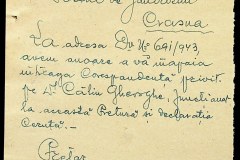 de Jandarmi
Crasna
La adresa Dv. No 691/943,
avem onoare a vă înapoia
corespondența privit.
pe Călin Gheorghe, funcționar
la această Pretură și declarația
cerută. —
Pretor